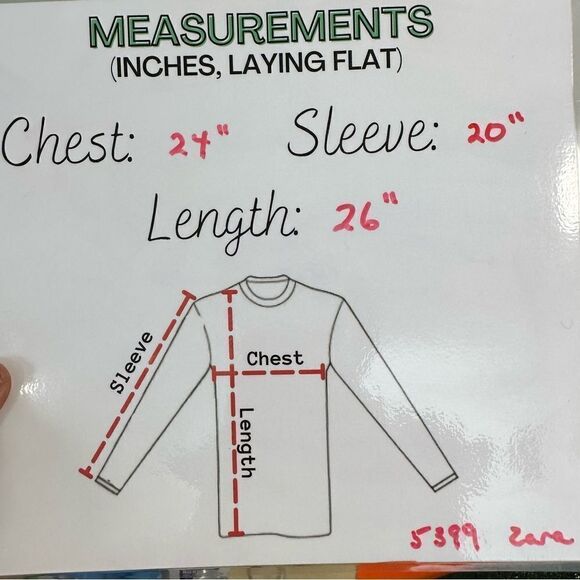 MEASUREMENTS
(INCHES, LAYING FLAT)
Chest: 24" Sleeve: 20"
Length: 26"
Sleeve
Chest
Length
5399 Zara